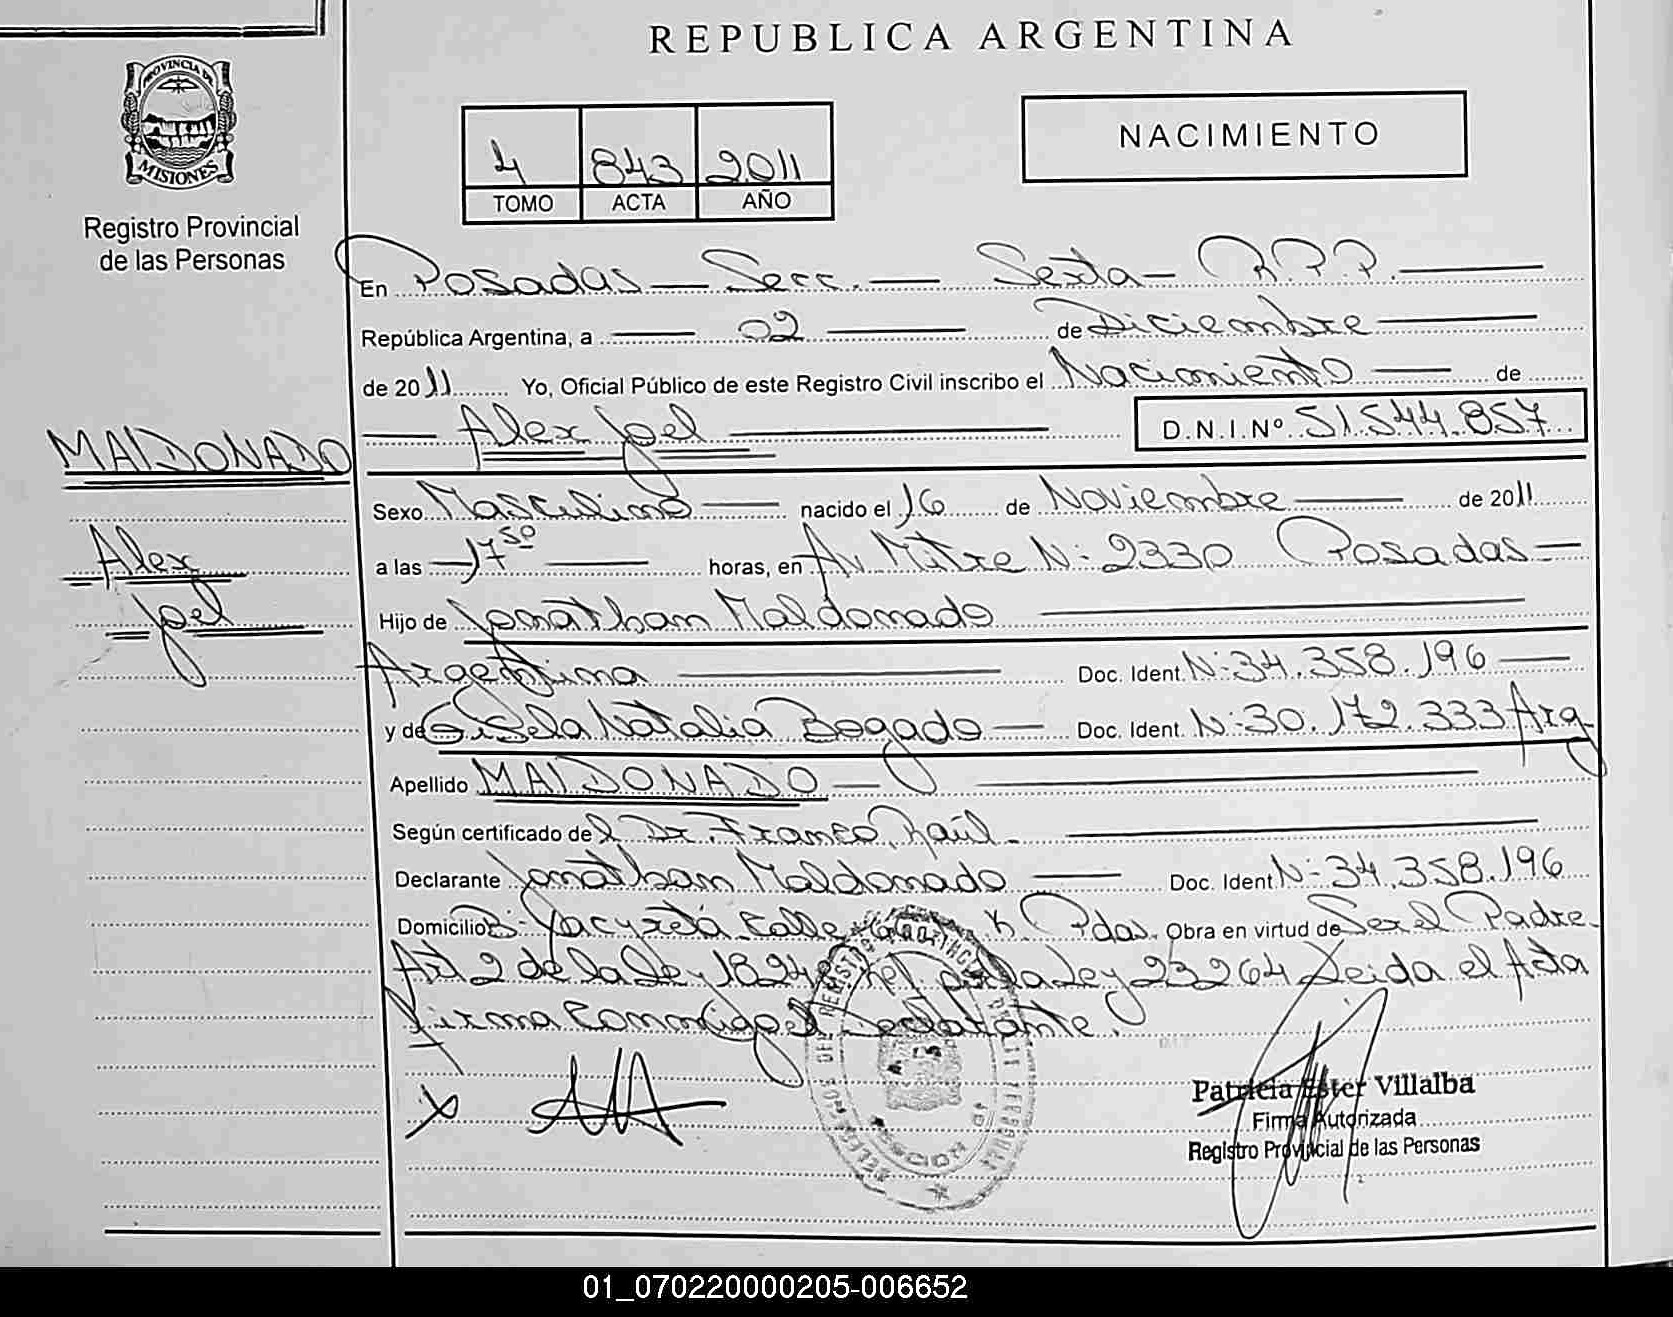 REPUBLICA ARGENTINA
PROVINCIA DE
MISIONES
Registro Provincial
de las Personas
4 843 2011
TOMO ACTA AÑO
NACIMIENTO
En Posadas — Secc. — Sexta — R.P.P. —
República Argentina, a — 02 — de Diciembre —
de 2011 Yo, Oficial Público de este Registro Civil inscribo el Nacimiento — de
— Alex Joel — D.N.I.Nº 51.544.857
MALDONADO
Alex
Joel
Sexo Masculino — nacido el 16 de Noviembre — de 2011
a las — 17 50 — horas, en Av. Mitre N: 2330 Posadas —
Hijo de Jonathan Maldonado —
Argentina — Doc. Ident. N: 34.358.196 —
y de Gisela Natalia Bogado — Doc. Ident. N: 30.172.333 Arg
Apellido MALDONADO —
Según certificado del Dr. Franco, Raúl. —
Declarante Jonathan Maldonado — Doc. Ident N: 34.358.196
Domicilio B: Yacyretá Calle K Pdas. Obra en virtud de Ser el Padre
Art 2 de la Ley por la Ley 23264 Leida el Acta
firma Conmigo el Declarante.
X
Patricia Ester Villalba
Firma Autorizada
Registro Provincial de las Personas
01_070220000205-006652